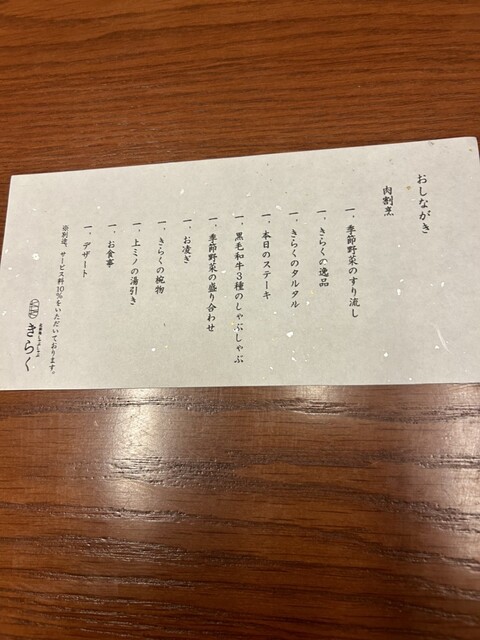 おしながき
肉割烹
一、季節野菜のすり流し
一、きらくの逸品
一、きらくのタルタル
一、本日のステーキ
一、黒毛和牛3種のしゃぶしゃぶ
一、季節野菜の盛り合わせ
一、お凌ぎ
一、きらくの椀物
一、上ミノの湯引き
一、お食事
一、デザート
※別途、サービス料10%をいただいております。
きらく